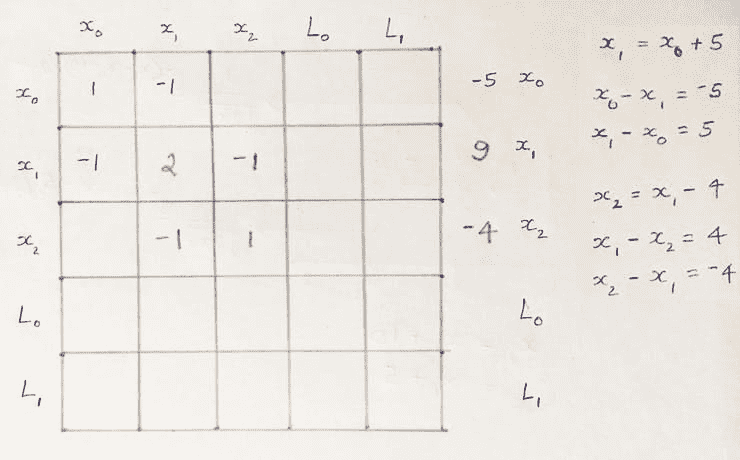 x₀ x₁ x₂ L₀ L₁
x₀ 1 -1 -5 x₀
x₁ -1 2 -1 9 x₁
x₂ -1 1 -4 x₂
L₀ L₀
L₁ L₁
x₁ = x₀ + 5
x₀ - x₁ = -5
x₁ - x₀ = 5
x₂ = x₁ - 4
x₁ - x₂ = 4
x₂ - x₁ = -4